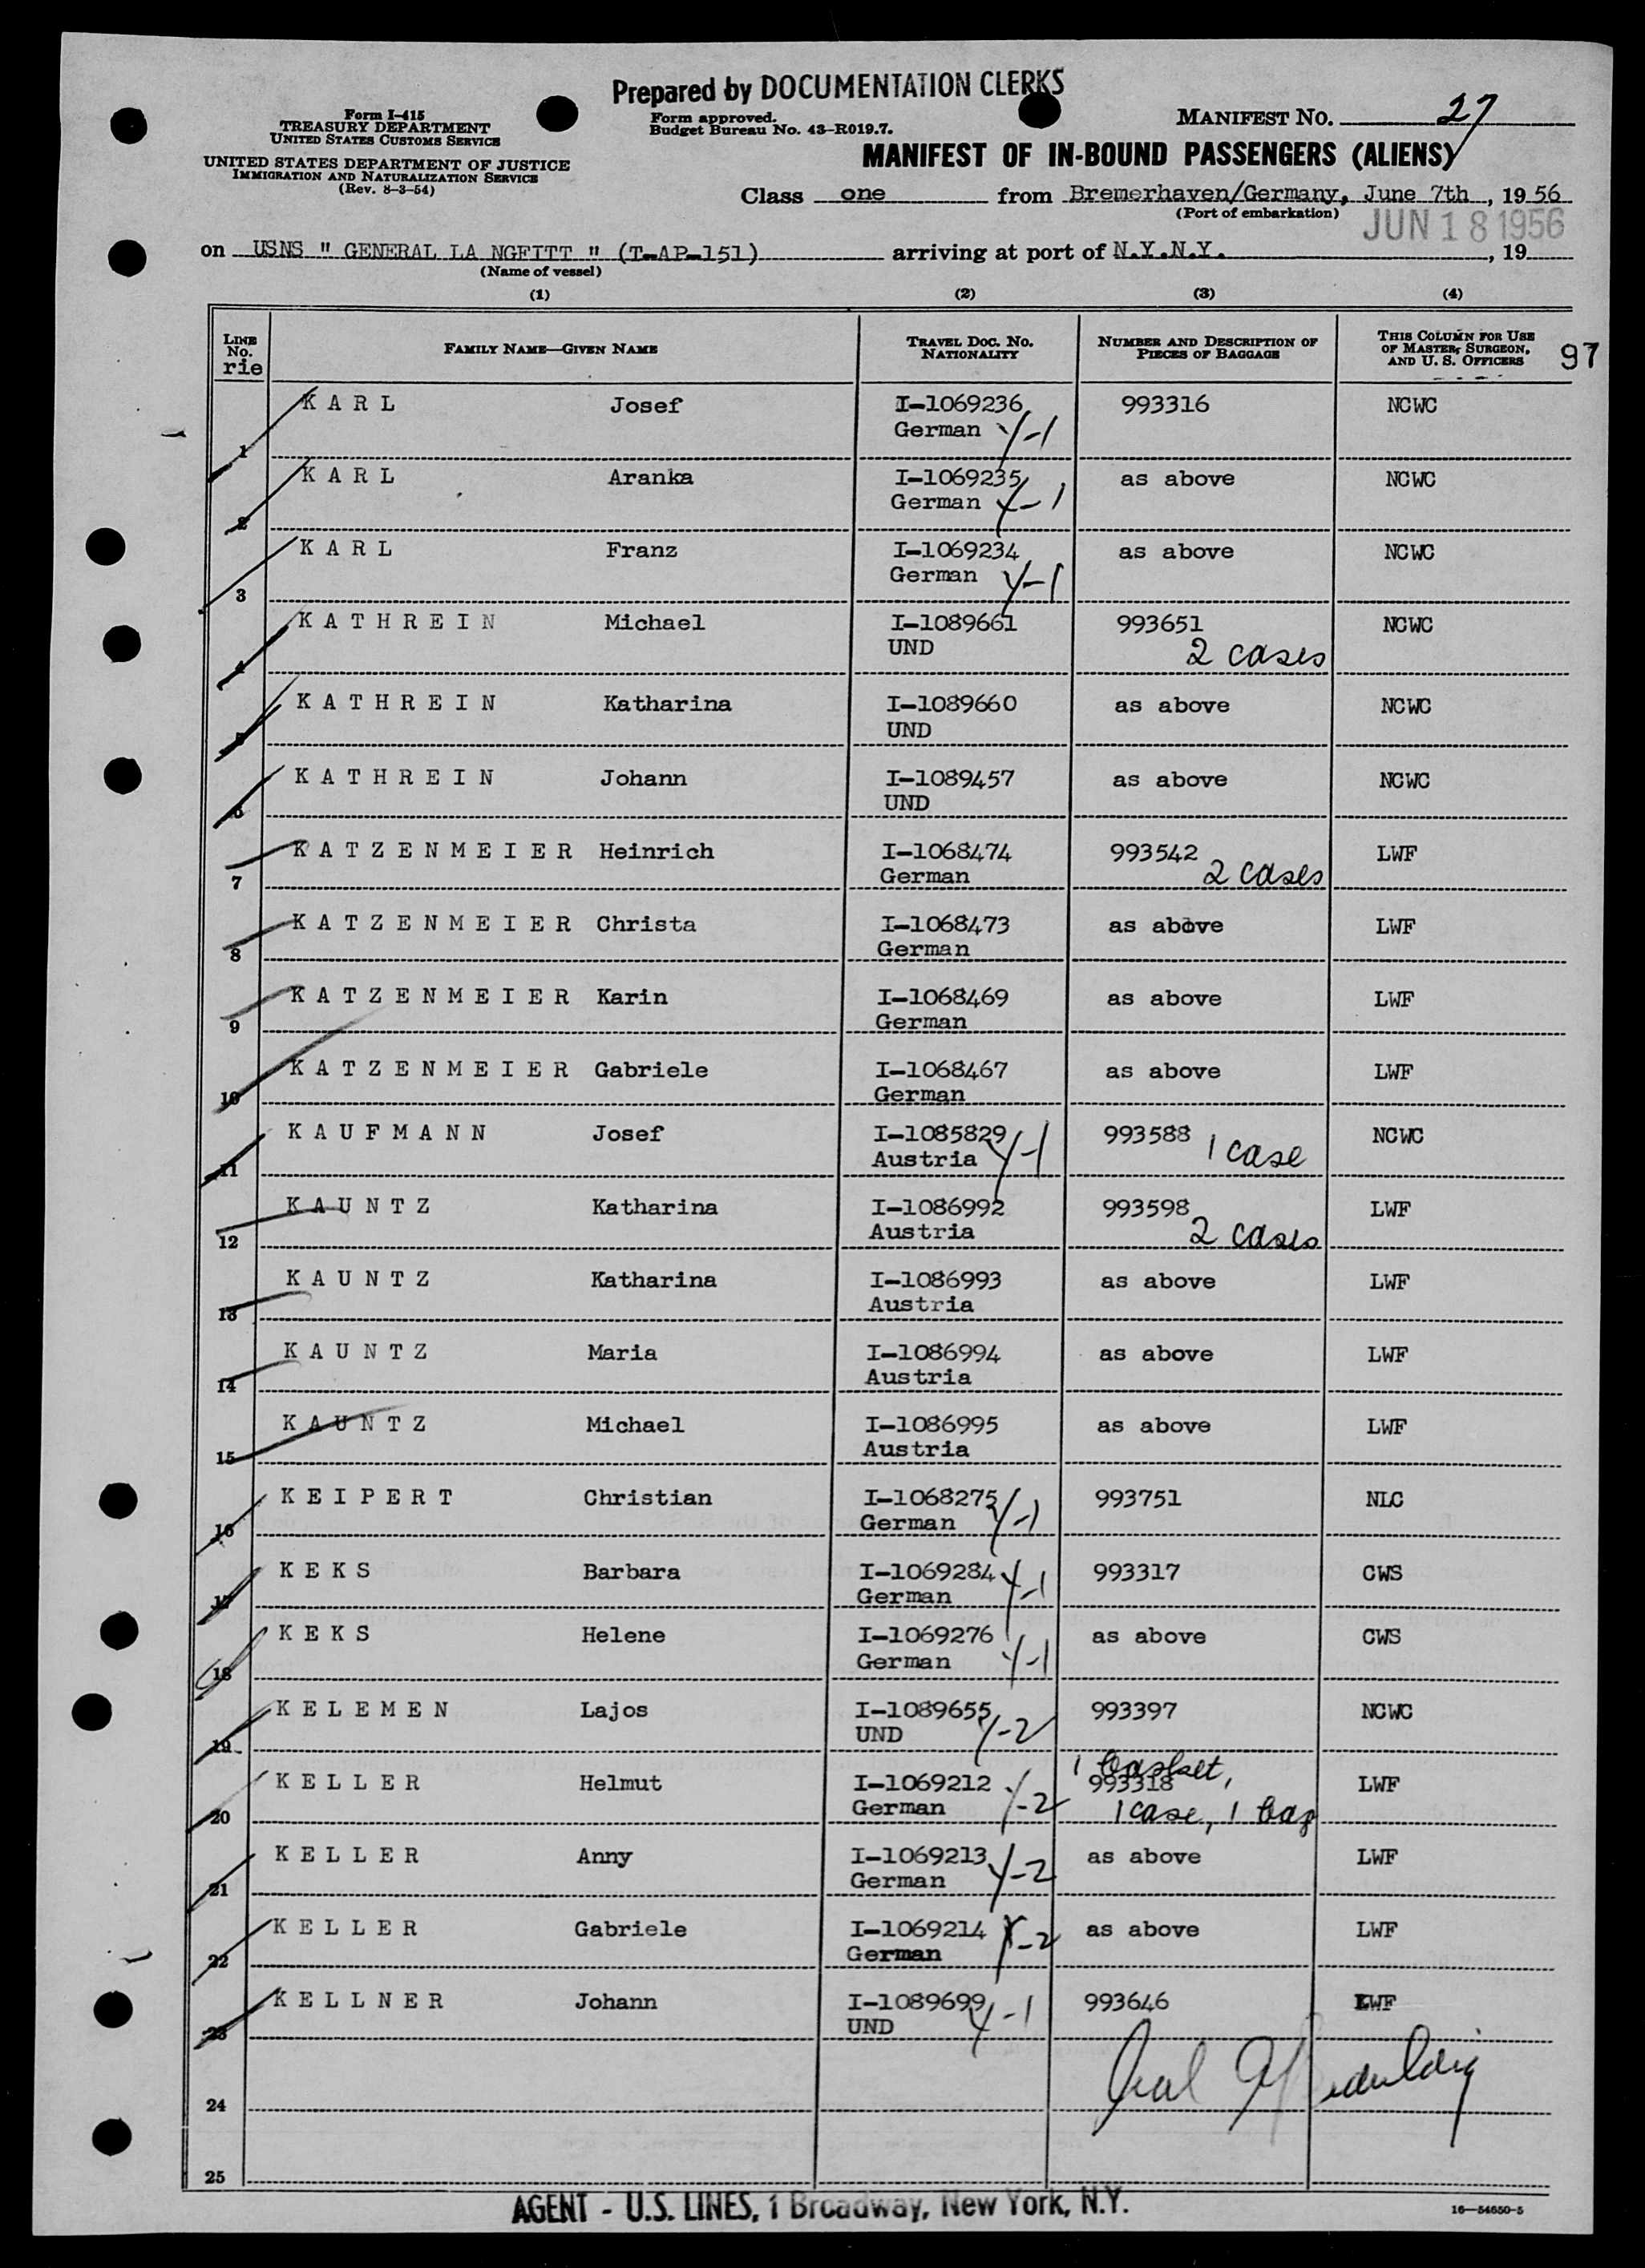 Prepared by DOCUMENTATION CLERKS
Form I-415
TREASURY DEPARTMENT
UNITED STATES CUSTOMS SERVICE
UNITED STATES DEPARTMENT OF JUSTICE
IMMIGRATION AND NATURALIZATION SERVICE
(Rev. 8-3-54)
Form approved.
Budget Bureau No. 43-R019.7.
MANIFEST No. 27
MANIFEST OF IN-BOUND PASSENGERS (ALIENS)
Class one from Bremerhaven/Germany, June 7th, 1956
(Port of embarkation)
JUN 18 1956
on USNS " GENERAL LA NGFITT " (T-AP-151) arriving at port of N.Y.N.Y. , 19
(Name of vessel)
(1) (2) (3) (4)
LINE No. FAMILY NAME—GIVEN NAME TRAVEL DOC. NO. NATIONALITY NUMBER AND DESCRIPTION OF PIECES OF BAGGAGE THIS COLUMN FOR USE OF MASTER, SURGEON, AND U. S. OFFICERS 97
rie
K A R L Josef I-1069236 993316 NCWC
1 German Y-1
K A R L Aranka I-1069235 as above NCWC
2 German Y-1
K A R L Franz I-1069234 as above NCWC
3 German Y-1
K A T H R E I N Michael I-1089661 993651 NCWC
4 UND 2 cases
K A T H R E I N Katharina I-1089660 as above NCWC
5 UND
K A T H R E I N Johann I-1089457 as above NCWC
6 UND
K A T Z E N M E I E R Heinrich I-1068474 993542 LWF
7 German 2 cases
K A T Z E N M E I E R Christa I-1068473 as above LWF
8 German
K A T Z E N M E I E R Karin I-1068469 as above LWF
9 German
K A T Z E N M E I E R Gabriele I-1068467 as above LWF
10 German
K A U F M A N N Josef I-1085829 993588 NCWC
11 Austria Y-1 1 case
K A U N T Z Katharina I-1086992 993598 LWF
12 Austria 2 cases
K A U N T Z Katharina I-1086993 as above LWF
13 Austria
K A U N T Z Maria I-1086994 as above LWF
14 Austria
K A U N T Z Michael I-1086995 as above LWF
15 Austria
K E I P E R T Christian I-1068275 993751 NLC
16 German Y-1
K E K S Barbara I-1069284 993317 CWS
17 German Y-1
K E K S Helene I-1069276 as above CWS
18 German Y-1
K E L E M E N Lajos I-1089655 993397 NCWC
19 UND Y-2
1 basket,
K E L L E R Helmut I-1069212 993318 LWF
20 German Y-2 1 case, 1 bag
K E L L E R Anny I-1069213 as above LWF
21 German Y-2
K E L L E R Gabriele I-1069214 as above LWF
22 German Y-2
K E L L N E R Johann I-1089699 993646 LWF
23 UND Y-1
24
25
AGENT - U.S. LINES, 1 Broadway, New York, N.Y.
16—54650-5